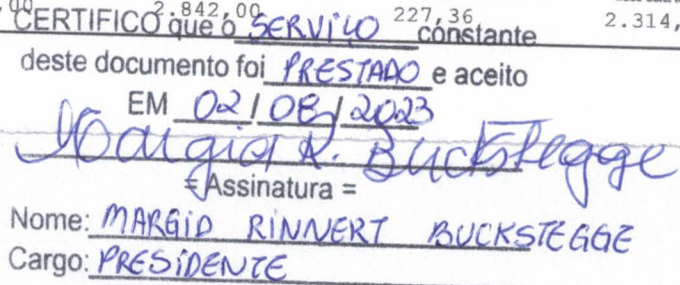 2.842,00 227,36 2.314,
CERTIFICO que o SERVIÇO constante
deste documento foi PRESTADO e aceito
EM 02/08/2023
Margid R. Buckstegge
= Assinatura =
Nome: MARGID RINNERT BUCKSTEGGE
Cargo: PRESIDENTE